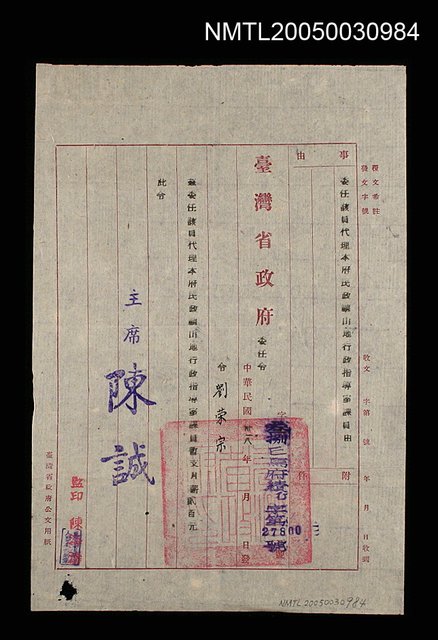 NMTL20050030984
覆文希註
發文字號
收文 字第 號 年 月 日收到
事由
委任該員代理本府民政廳山地行政指導室課員由
附件
臺灣省政府
委任令
中華民國卅八年 月 日發
令 劉荣宗
茲委任該員代理本府民政廳山地行政指導室課員
此令
主席 陳誠
監印 陳
臺灣省政府公文用紙
27800
NMTL20050030984